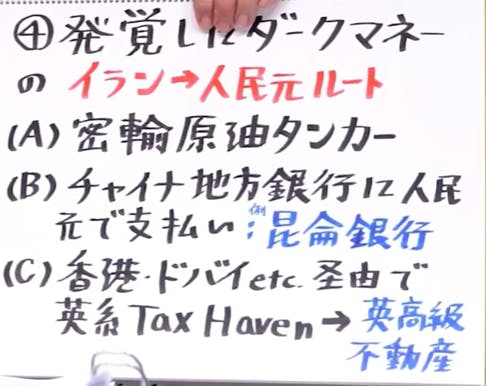 ④発覚したダークマネー
の イラン→人民元ルート
(A) 密輸原油タンカー
(B) チャイナ地方銀行に人民
元で支払い:例 昆侖銀行
(C) 香港・ドバイetc. 経由で
英系 Tax Haven→英高級
不動産